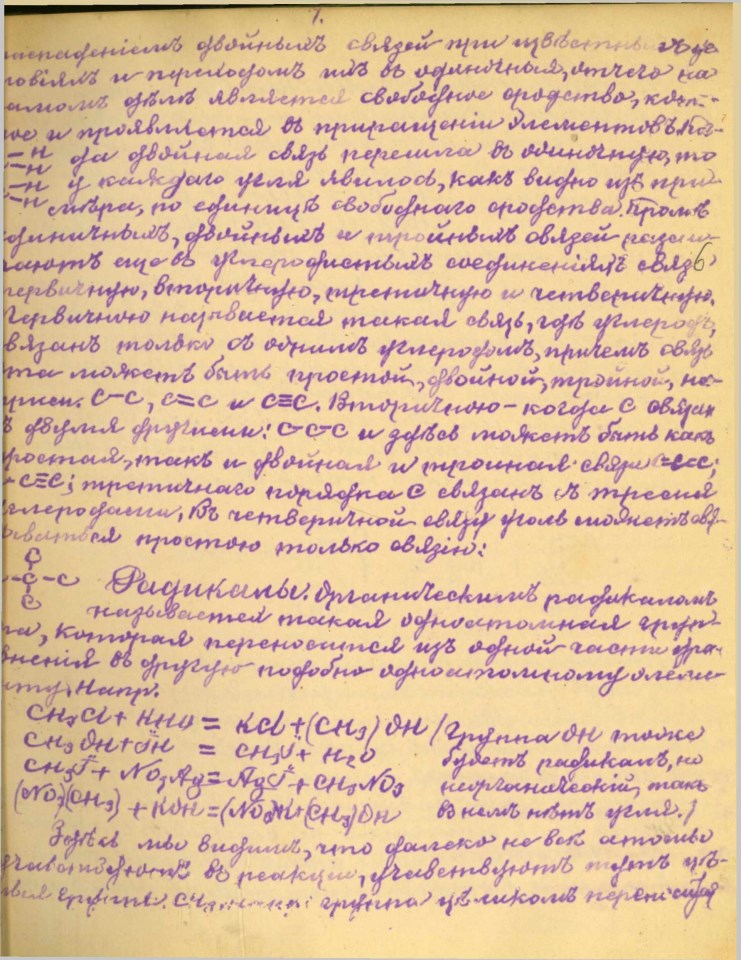 7.
распаденіемъ двойныхъ связей при извѣстныхъ ус
ловіяхъ и переходомъ ихъ въ одиночная, отчего на
самомъ дѣлѣ является свободное сродство, кото-
рое и проявляется въ приращеніи элементовъ.
=Н да двойная связь перешла въ одиночную, то
=Н у каждаго угля явилось, какъ видно изъ при-
мѣра, по единицѣ свободнаго сродства. Кромѣ
единичныхъ, двойныхъ и тройныхъ связей разли-
чаютъ еще въ углеродистыхъ соединеніяхъ связь 6
первичную, вторичную, третичную и четверичную.
Первичною называется такая связь, гдѣ углеродъ,
связанъ только съ однимъ углеродомъ, причемъ связь
эта можетъ быть простой, двойной, тройной, на-
прим. С-С, С=С и С≡С. Вторичною - когда С связан
ъ двумя другими: С-С-С и здѣсь можетъ быть какъ
простая, такъ и двойная и троиная связи =С=С;
-С≡С; третичнаго порядка С связанъ съ тремя
углеродами, Въ четверичной связи уголь можетъ свя-
зываться простою только связію:
С
-С-С
С
Радикалы. Органическимъ радикаломъ
называется такая одноатомная груп-
па, которая переносится изъ одной части урав-
ненія въ другую подобно одноатомному элеме-
нту. Напр.
CH₃Cl + KHO = KCl + (CH₃)OH / Группа OH тоже
CH₃OH + JH = CH₃J + H₂O будетъ радикалъ, но
CH₃J + NO₃Ag = AgJ + CH₃NO₃ неорганическій, такъ
(NO₃)(CH₃) + KOH = (NO₃)K + (CH₃)OH въ немъ нѣтъ угля.)
Здѣсь мы видимъ, что далеко не всѣ атомы
участвуютъ въ реакціи, участвуютъ тутъ цѣ-
лыя группы. группа цѣликомъ